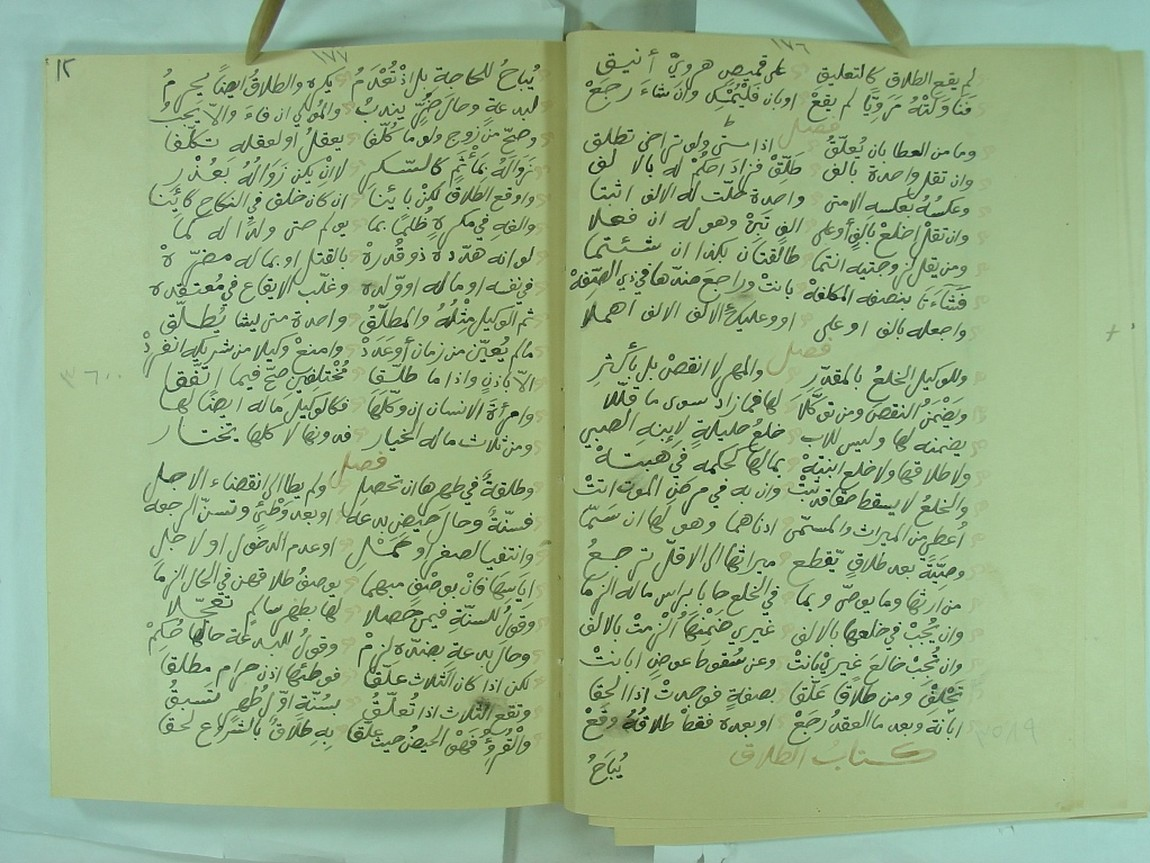 ١٧٦
لم يقع الطلاق كالتعليق على قميص هرويّ أنيق
فناولته مرويًّا لم يقع او بان فليمسك وان شاء رجع
فصل
وما من العطا بان يعلّق اذا متى ولو تراخى تطلق
وان تقل واحدة بالف طلّق فزاد احكم له بالالف
وعكسه بعكسه الا متى واحدة طلّت له الالف اثبتا
وان تقل اخلع بالف أو على الف تبن وهو له ان فعلا
ومن يقل زوجتيه انتما طالقتان بكذا ان شئتما
فشاءتا بنصفه المكلفة بانت وراجع ضدّها في ذي الصفة
واجعله بالف او على او وعليك الالف الالف اهملا
فصل
وللوكيل الخلع بالمقدّر والمهر لا انقص بل بأكثر
ويضمن النقص ومن توكّلا لها فما زاد سوى ما قلّلا
يضمنه لها وليس للاب خلع حليلة لابنه الصبي
ولا طلاقها ولا خلع ابنته بمالها كحكمه في هبته
والخلع لا يسقط حقا قد ثبت وان به في مرض الموت اتت
أعطي من الميراث والمسمّى ادناهما وهو لها ان سمّا
وصيّة بعد طلاق يقطع ميراثها الى الاقلّ ترجع
من ارثها وما يوصّى وبما في الخلع حابا براس ماله الزما
وان يجب في خلعها بالالف غيري ضمنها ألزمت بالالف
وان يجب خالع غيري بانت وعن سقوط عوض ابانت
تحلف ومن طلاقا علّقا بصفة فوجدت اذا الحقا
ابانة وبعد ما العقد رجع او بعده فقط طلاقه وقع
كتاب الطلاق
يُباحُ
١٧٧
١٢
يُباحُ للحاجة بل اذ تُعدمُ يكره والطلاق ايضا يحرمُ
لبدعة وحال ضرّ يندب والمولي ان فاء والّا يجب
وصحّ من زوج ولو ما كلّفا يعقل او لعقله تكلّفا
زواله بمأثم كالسّكر لا ان يكن زواله بعذر
واوقع الطلاق لكن بائنا ان كان خلف في النكاح كائنا
والغه في مكره ظلما بما يولم حتى ولدا له كما
لو انه هدّده ذو قدرة بالقتل او بما له مضرّة
في نفسه او ماله او ولده وغلّب الايقاع في معتقده
ثم الوكيل مثله والمطلّق واحدة متى يشا يطلّق
ما لم يعيّن من زمان أو عدد وامنع وكيلا من شريكه انفرد
الّا باذن واذا ما طلّقا مختلفين صحّ فيما اتّفقا
٣٦٠٠
وامرأة الانسان ان وكّلها فكالوكيل ماله ايضا لها
ومن ثلاث ماله الخيار فدونها لا كلها يختار
فصل
وطلقة في طهرها ان تحصل ولم يطا الى انقضاء الاجل
فسنّة وحال حيض بدعة او بعد وطئ وتسنّ الرجعة
وانتفيا لصغر او حمل او عدم الدخول او لاجل
اياسها فان بوصف مبهما يوصف طلاقهن في الحال الزما
وقول للسنّة فيمن حصلا لها بطهر سالم تعجّلا
وحال بدعة بضدّه لزم وقول للبدعة حالها حكم
لكن اذا كان الثلاث علّقا فوطئها اذن حرام مطلقا
وتقع الثلاث اذا تعلّق بسنّة اوّل طهر تسبق
والقرء فهو الحيض حيث علّقا به طلاق بالشروع لحقا